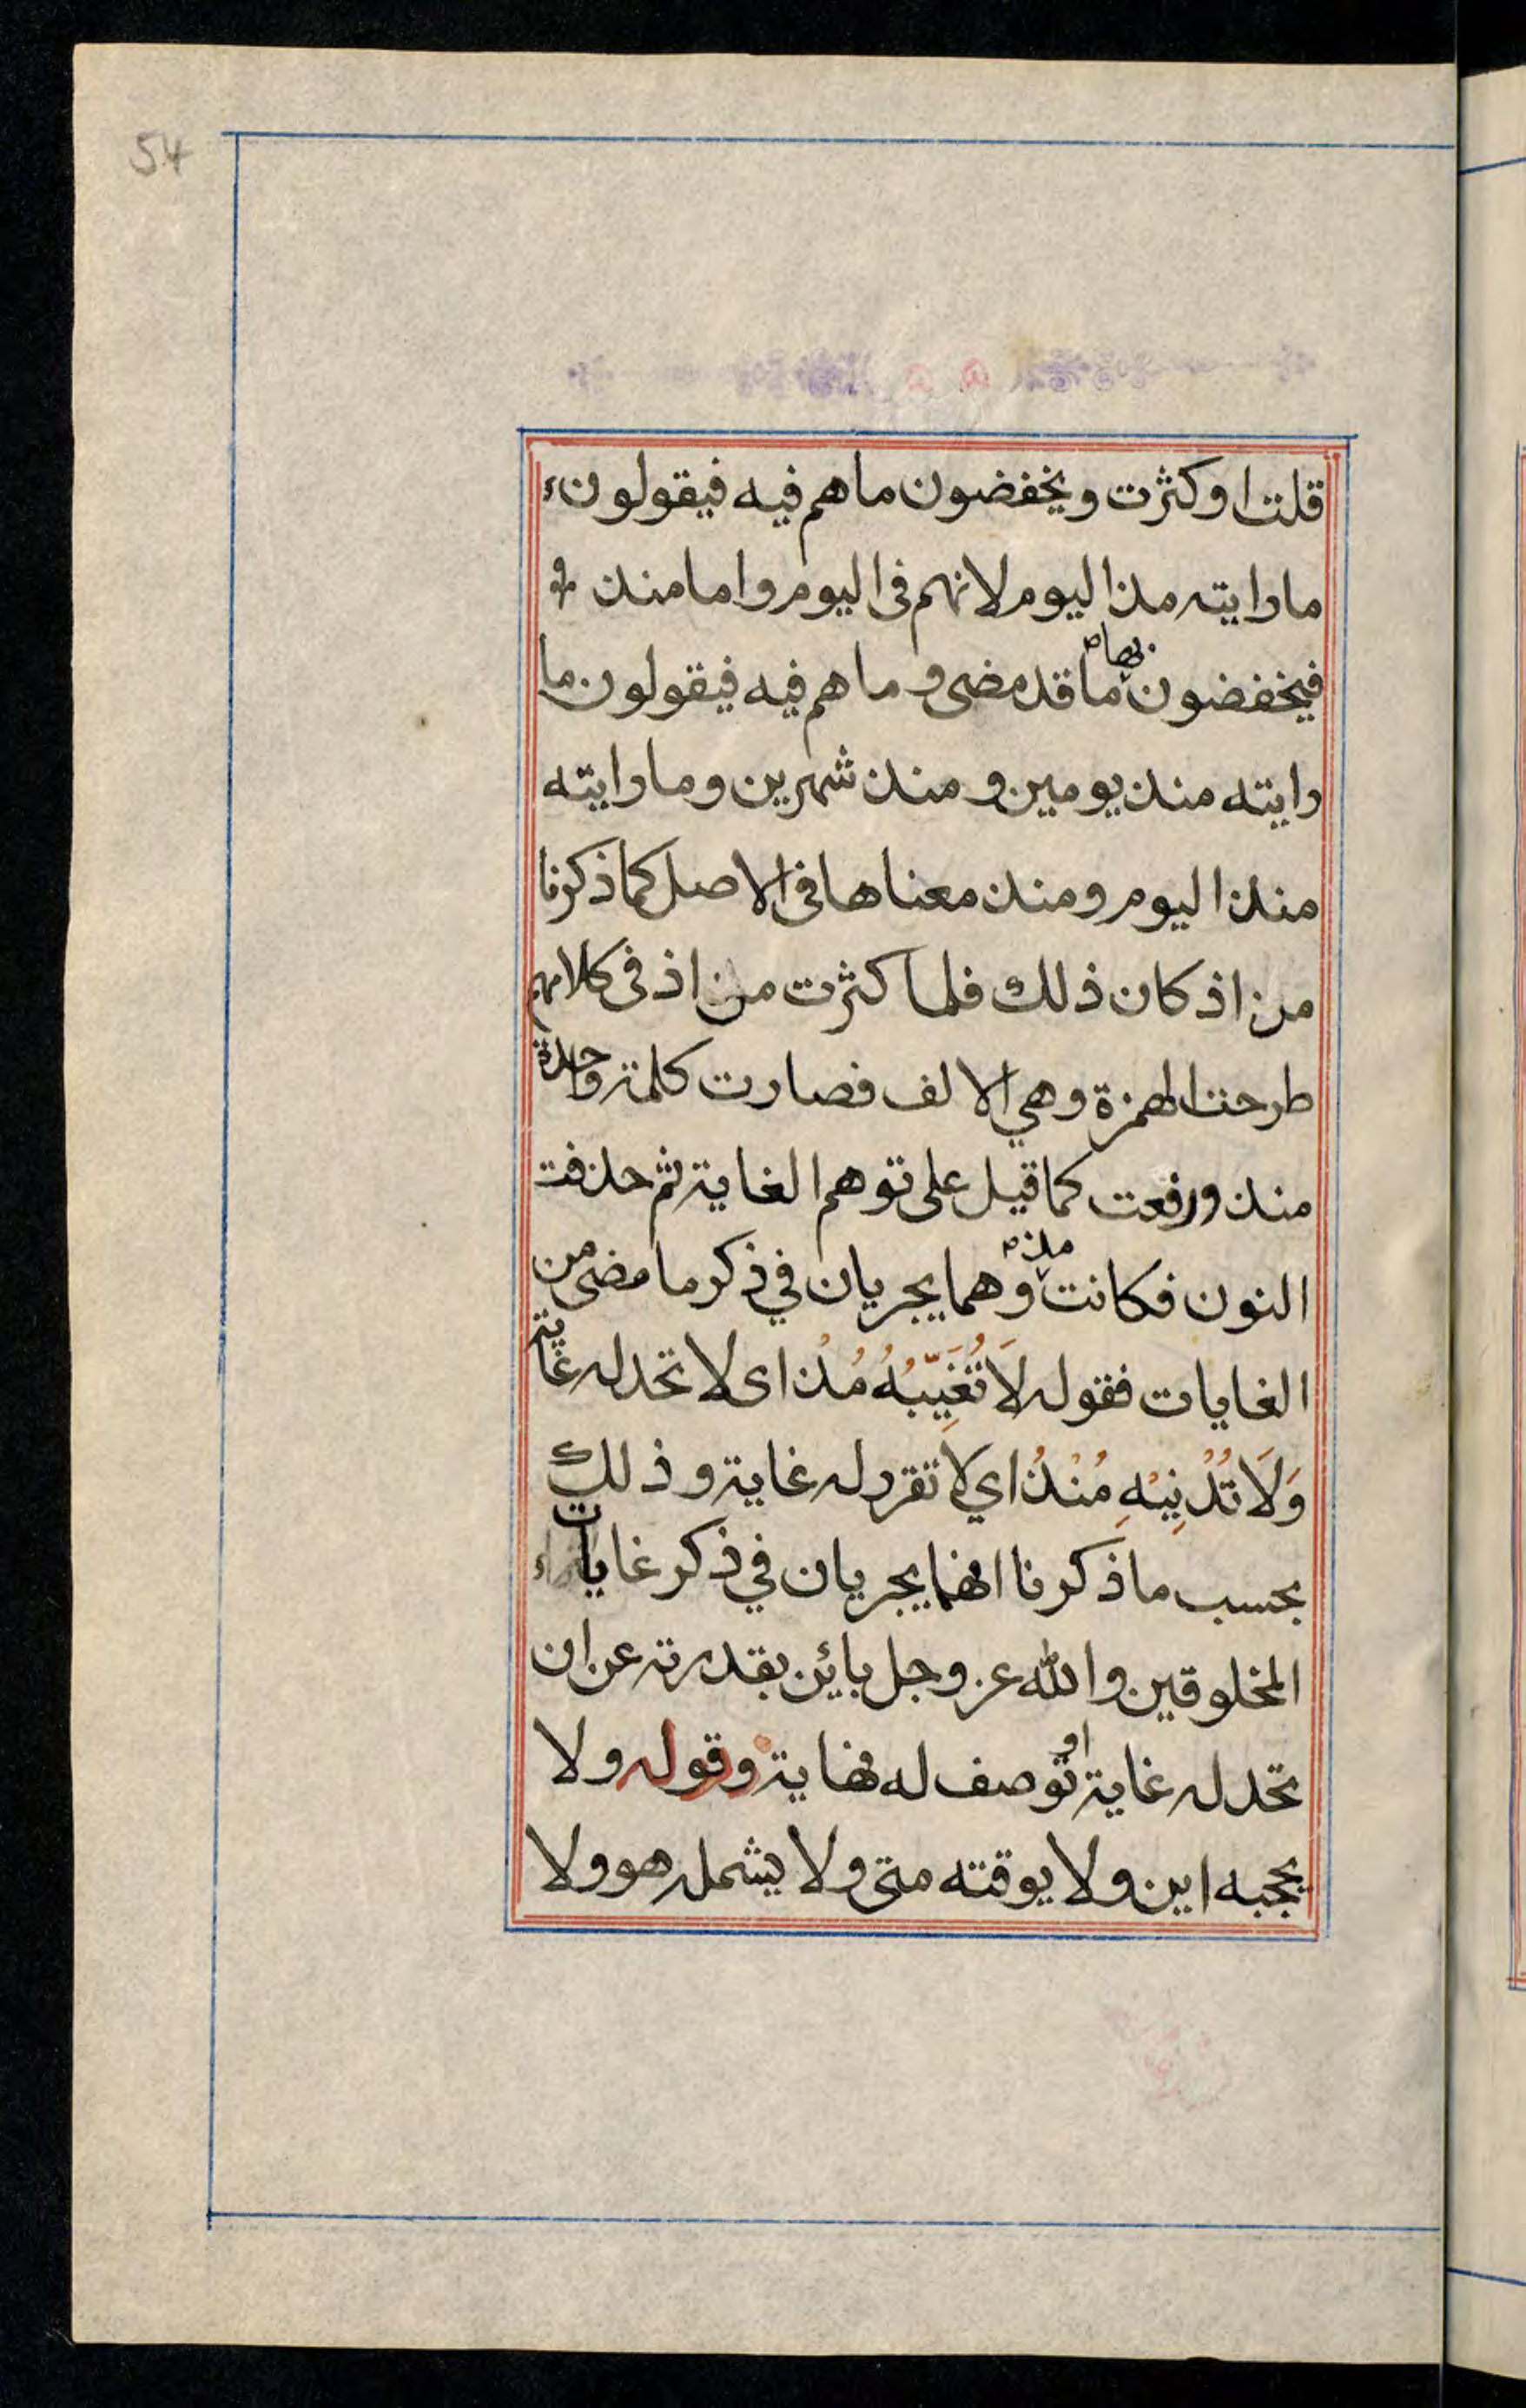 54
قلت او كثرت ويخفضون ما هم فيه فيقولون
ما رايته مذ اليوم لانهم فى اليوم واما منذ
بها صح
فيخفضون ما قد مضى وما هم فيه فيقولون ما
رايته منذ يومين ومنذ شهرين وما رايته
منذ اليوم ومنذ معناها فى الاصل كما ذكرنا
من اذ كان ذلك فلما كثرت من اذ فى كلامهم
طرحت الهمزة وهي الالف فصارت كلمة واحدة
منذ ورفعت كما قيل على توهم الغاية ثم حذفت
مذ صح
النون فكانت وهما يجريان في ذكر ما مضى من
الغايات فقوله لَا تُغَيِّبُهُ مُذْ اى لا تحد له غاية
وَلَا تُدْنِيْهِ مُنْذُ اي لا تقرر له غاية وذلك
بحسب ما ذكرنا انهما يجريان في ذكر غايات
المخلوقين والله عز وجل بائن بقدرته عن ان
تحد له غاية او توصف له نهاية وقوله ولا
يحجبه اين ولا يوقته متى ولا يشمله هو ولا